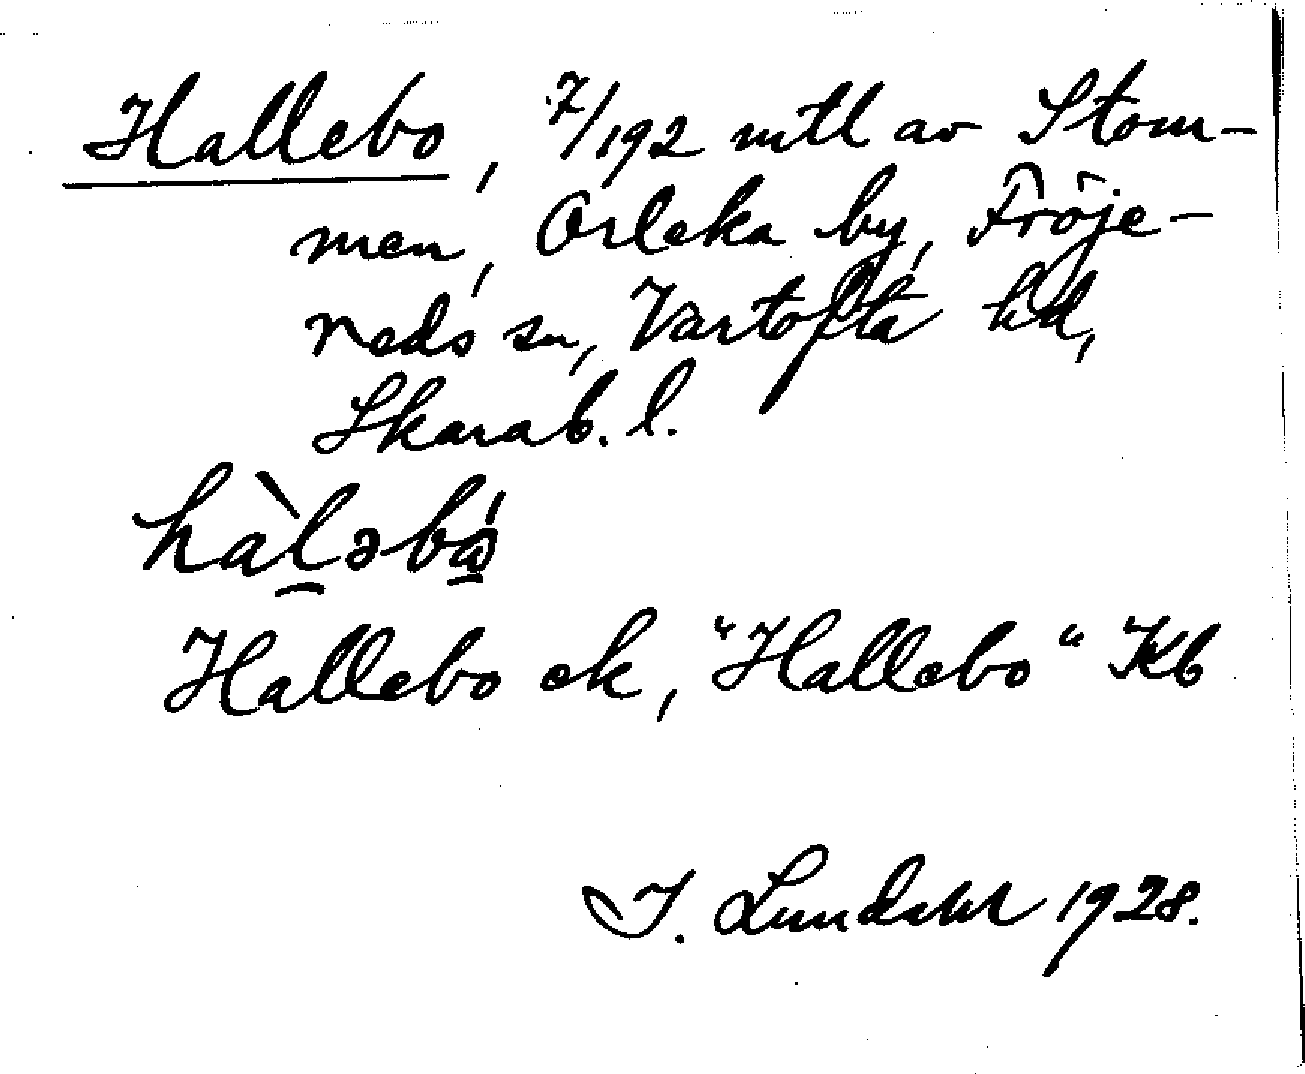 Hallebo, 7/192 mtl av Stom-
men, Orleka by, Fröje-
reds sn, Vartofta hd,
Skarab. l.
hàl̠əbǻ
Hallebo ek, "Hallebo" Kb
I. Lundahl 1928.